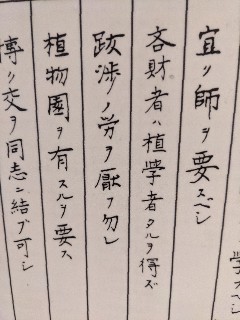 学フベシ
宜シク師ヲ要スベシ
吝財者ハ植学者タルヲ得ズ
跋渉ノ労ヲ厭フ勿レ
植物園ヲ有スルヲ要ス
博ク交ヲ同志ニ結ブ可シ